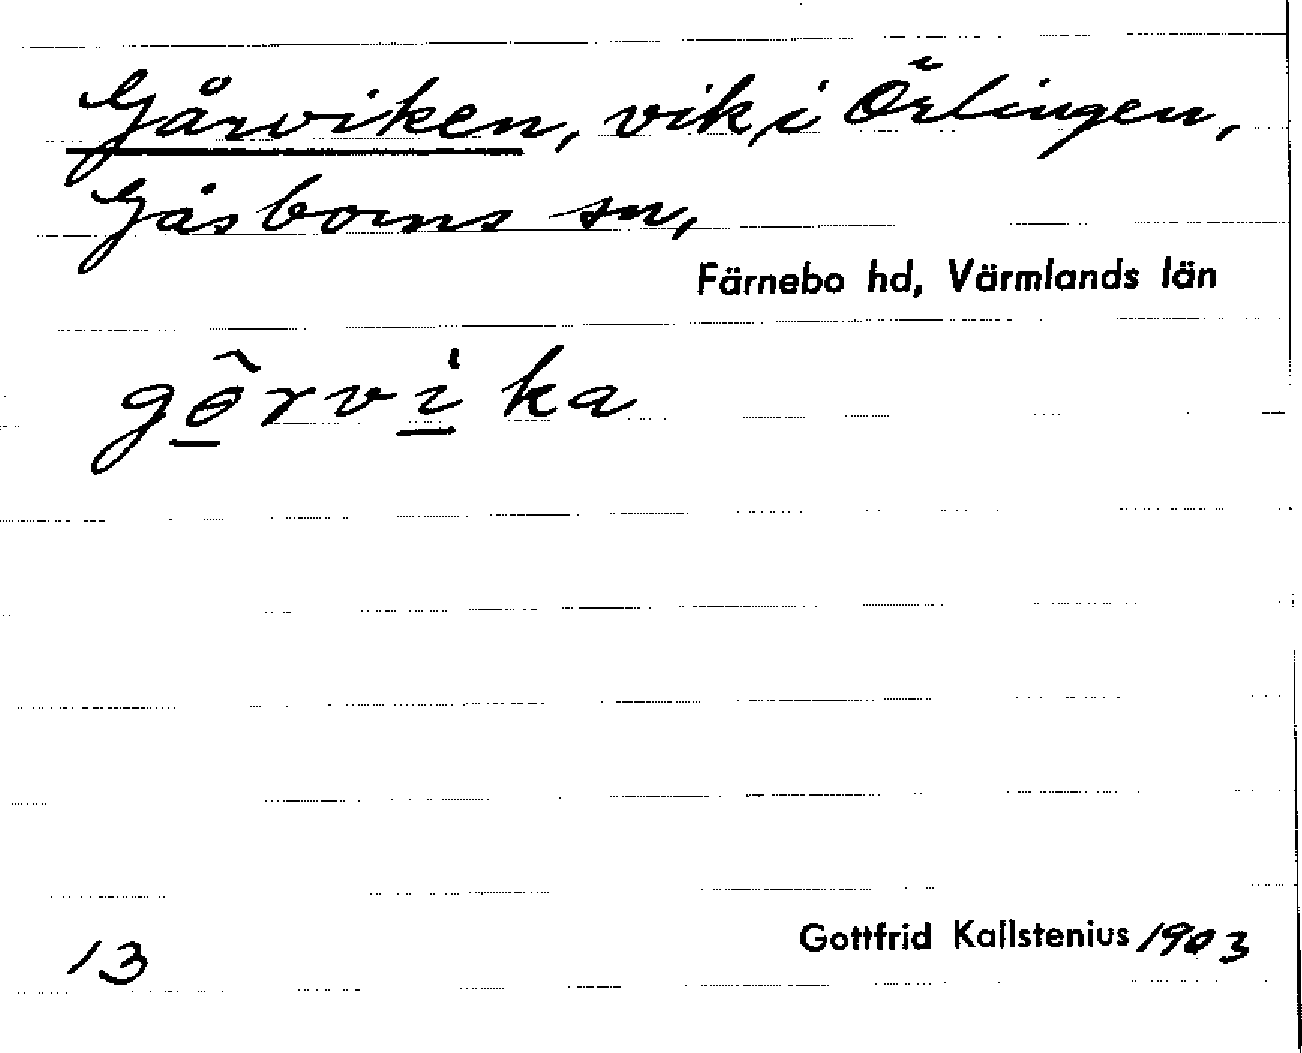 Gårviken, vik i Örlingen,
Gåsborns sn,
Färnebo hd, Värmlands län
gôrvika
13
Gottfrid Kallstenius 1903